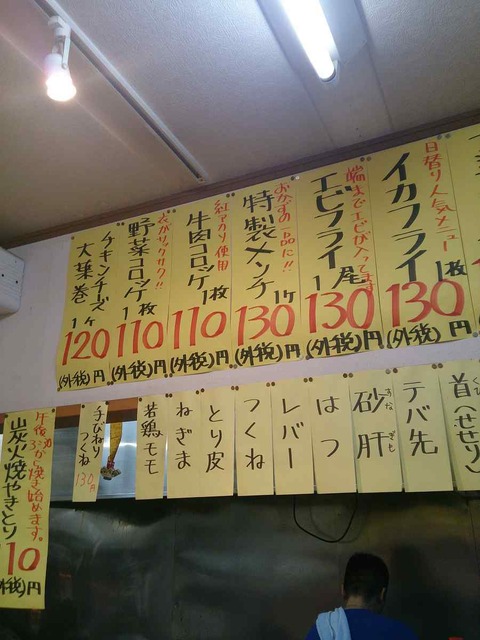 日替り人気メニュー
イカフライ
1枚
130
(外税)円
端までエビが入ってます
エビフライ
1尾
130
(外税)円
おかずの一品に!!
特製メンチ
1ケ
130
(外税)円
紅アカリ使用
牛肉コロッケ
1枚
110
(外税)円
野菜コロッケ
1枚
110
(外税)円
チキンチーズ
大葉巻
1ケ
120
(外税)円
首(せせり)
くび
テバ先
砂肝
すなぎも
はつ
レバー
つくね
とり皮
ねぎま
若鶏モモ
手びねり
つくね
130円
午後3時から焼き始めます。
炭火焼やきとり
110
(外税)円